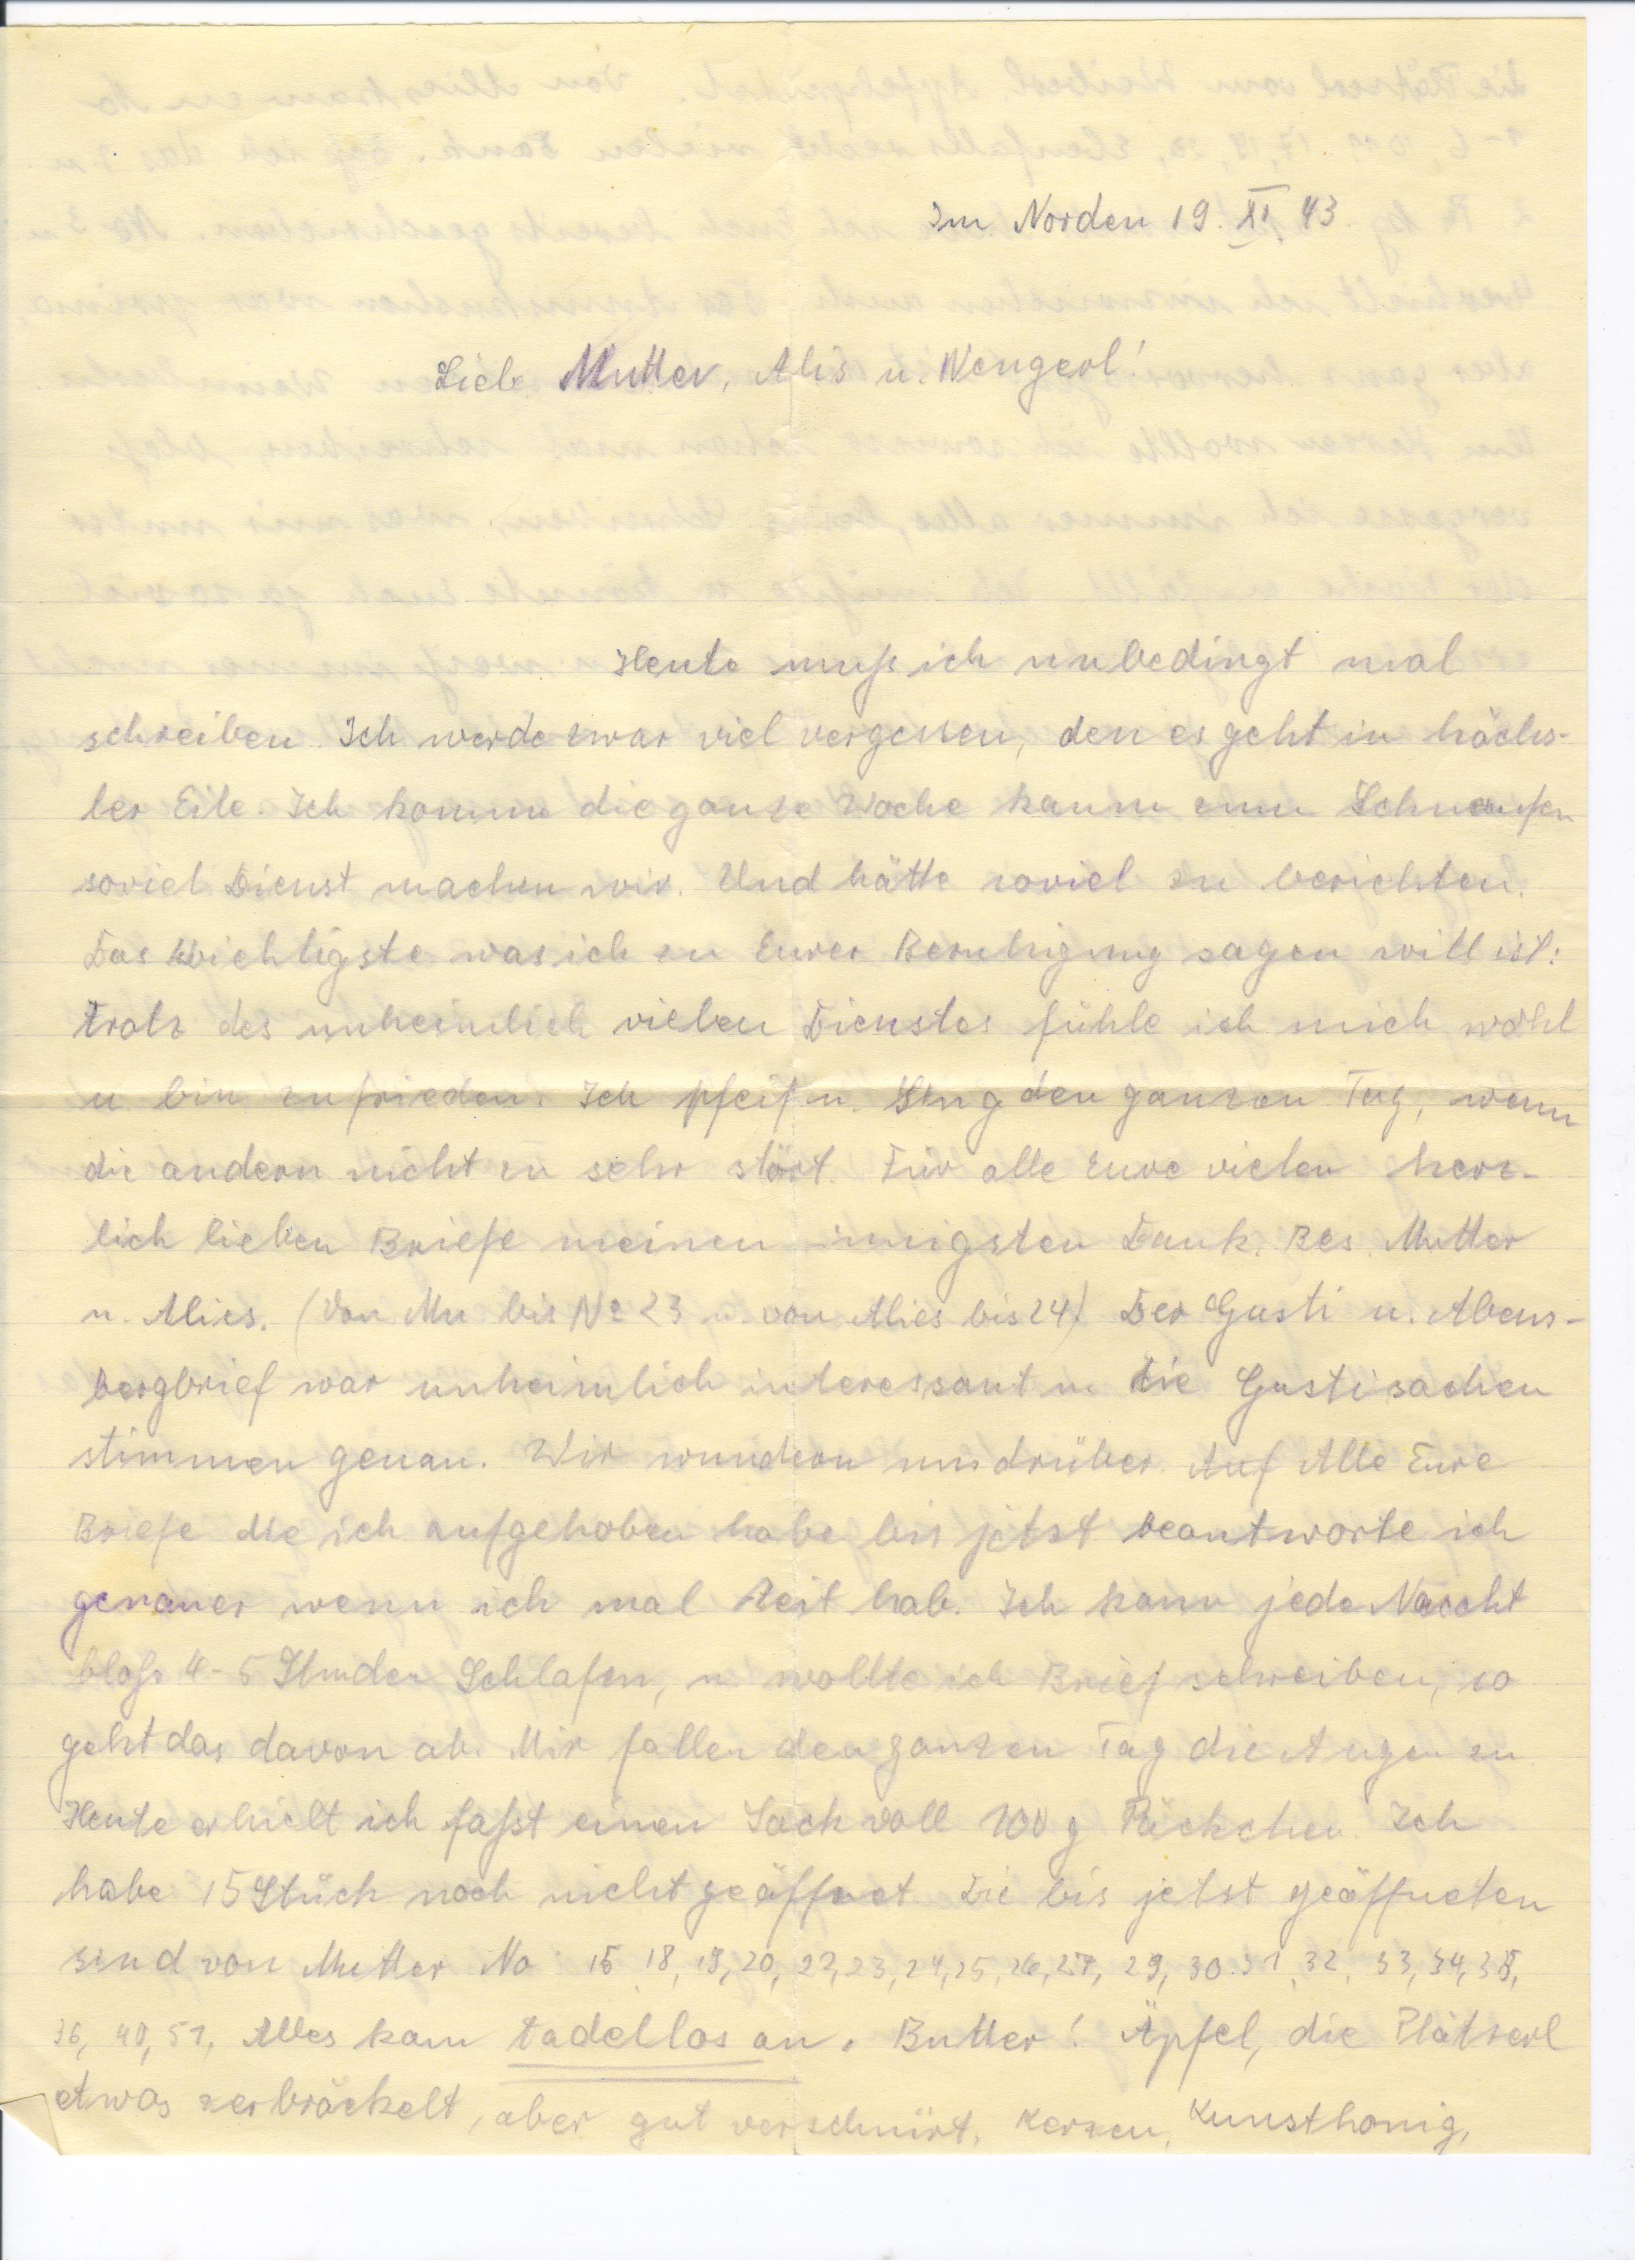 Im Norden 19. XI. 43.
Liebe Mutter, Alis u. Wengerl!
Heute muß ich unbedingt mal
schreiben. Ich werde zwar viel vergessen, den es geht in höchs-
ter Eile. Ich komme die ganze Woche kaum zum Schnaufen
soviel Dienst machen wir. Und hätte soviel zu berichten.
Das Wichtigste was ich zu Eurer Beruhigung sagen will ist:
Trotz des unheimlich vielen Dienstes fühle ich mich wohl
u. bin zufrieden. Ich pfeif u. sing den ganzen Tag, wenn
die andern nicht zu sehr stört. Für alle Eure vielen herz-
lich lieben Briefe meinen innigsten Dank. Bes. Mutter
u. Alies. (Von Mu bis No 23 u. von Alies bis 24) Der Gusti u. Abens-
bergbrief war unheimlich interessant u. die Gustisachen
stimmen genau. Wir wundern uns drüber. Auf Alle Eure
Briefe die ich aufgehoben habe bis jetzt beantworte ich
genauer wenn ich mal Zeit hab. Ich kann jede Nacht
bloß 4-5 Stunden Schlafen, u. wollte ich Brief schreiben, so
geht das davon ab. Mir fallen den ganzen Tag die Augen zu
Heute erhielt ich faßt einen Sack voll 100 g Päckchen. Ich
habe 15 Stück noch nicht geöffnet. Die bis jetzt geöffneten
sind von Mutter No 18, 19, 20, 22, 23, 24, 25, 26, 27, 29, 30. 31, 32, 33, 34, 35,
36, 40, 51, Alles kam tadellos an. Butter! Äpfel, die Plätzerl
etwas zerbröckelt, aber gut verschnürt, Kerzen, Kunsthonig,